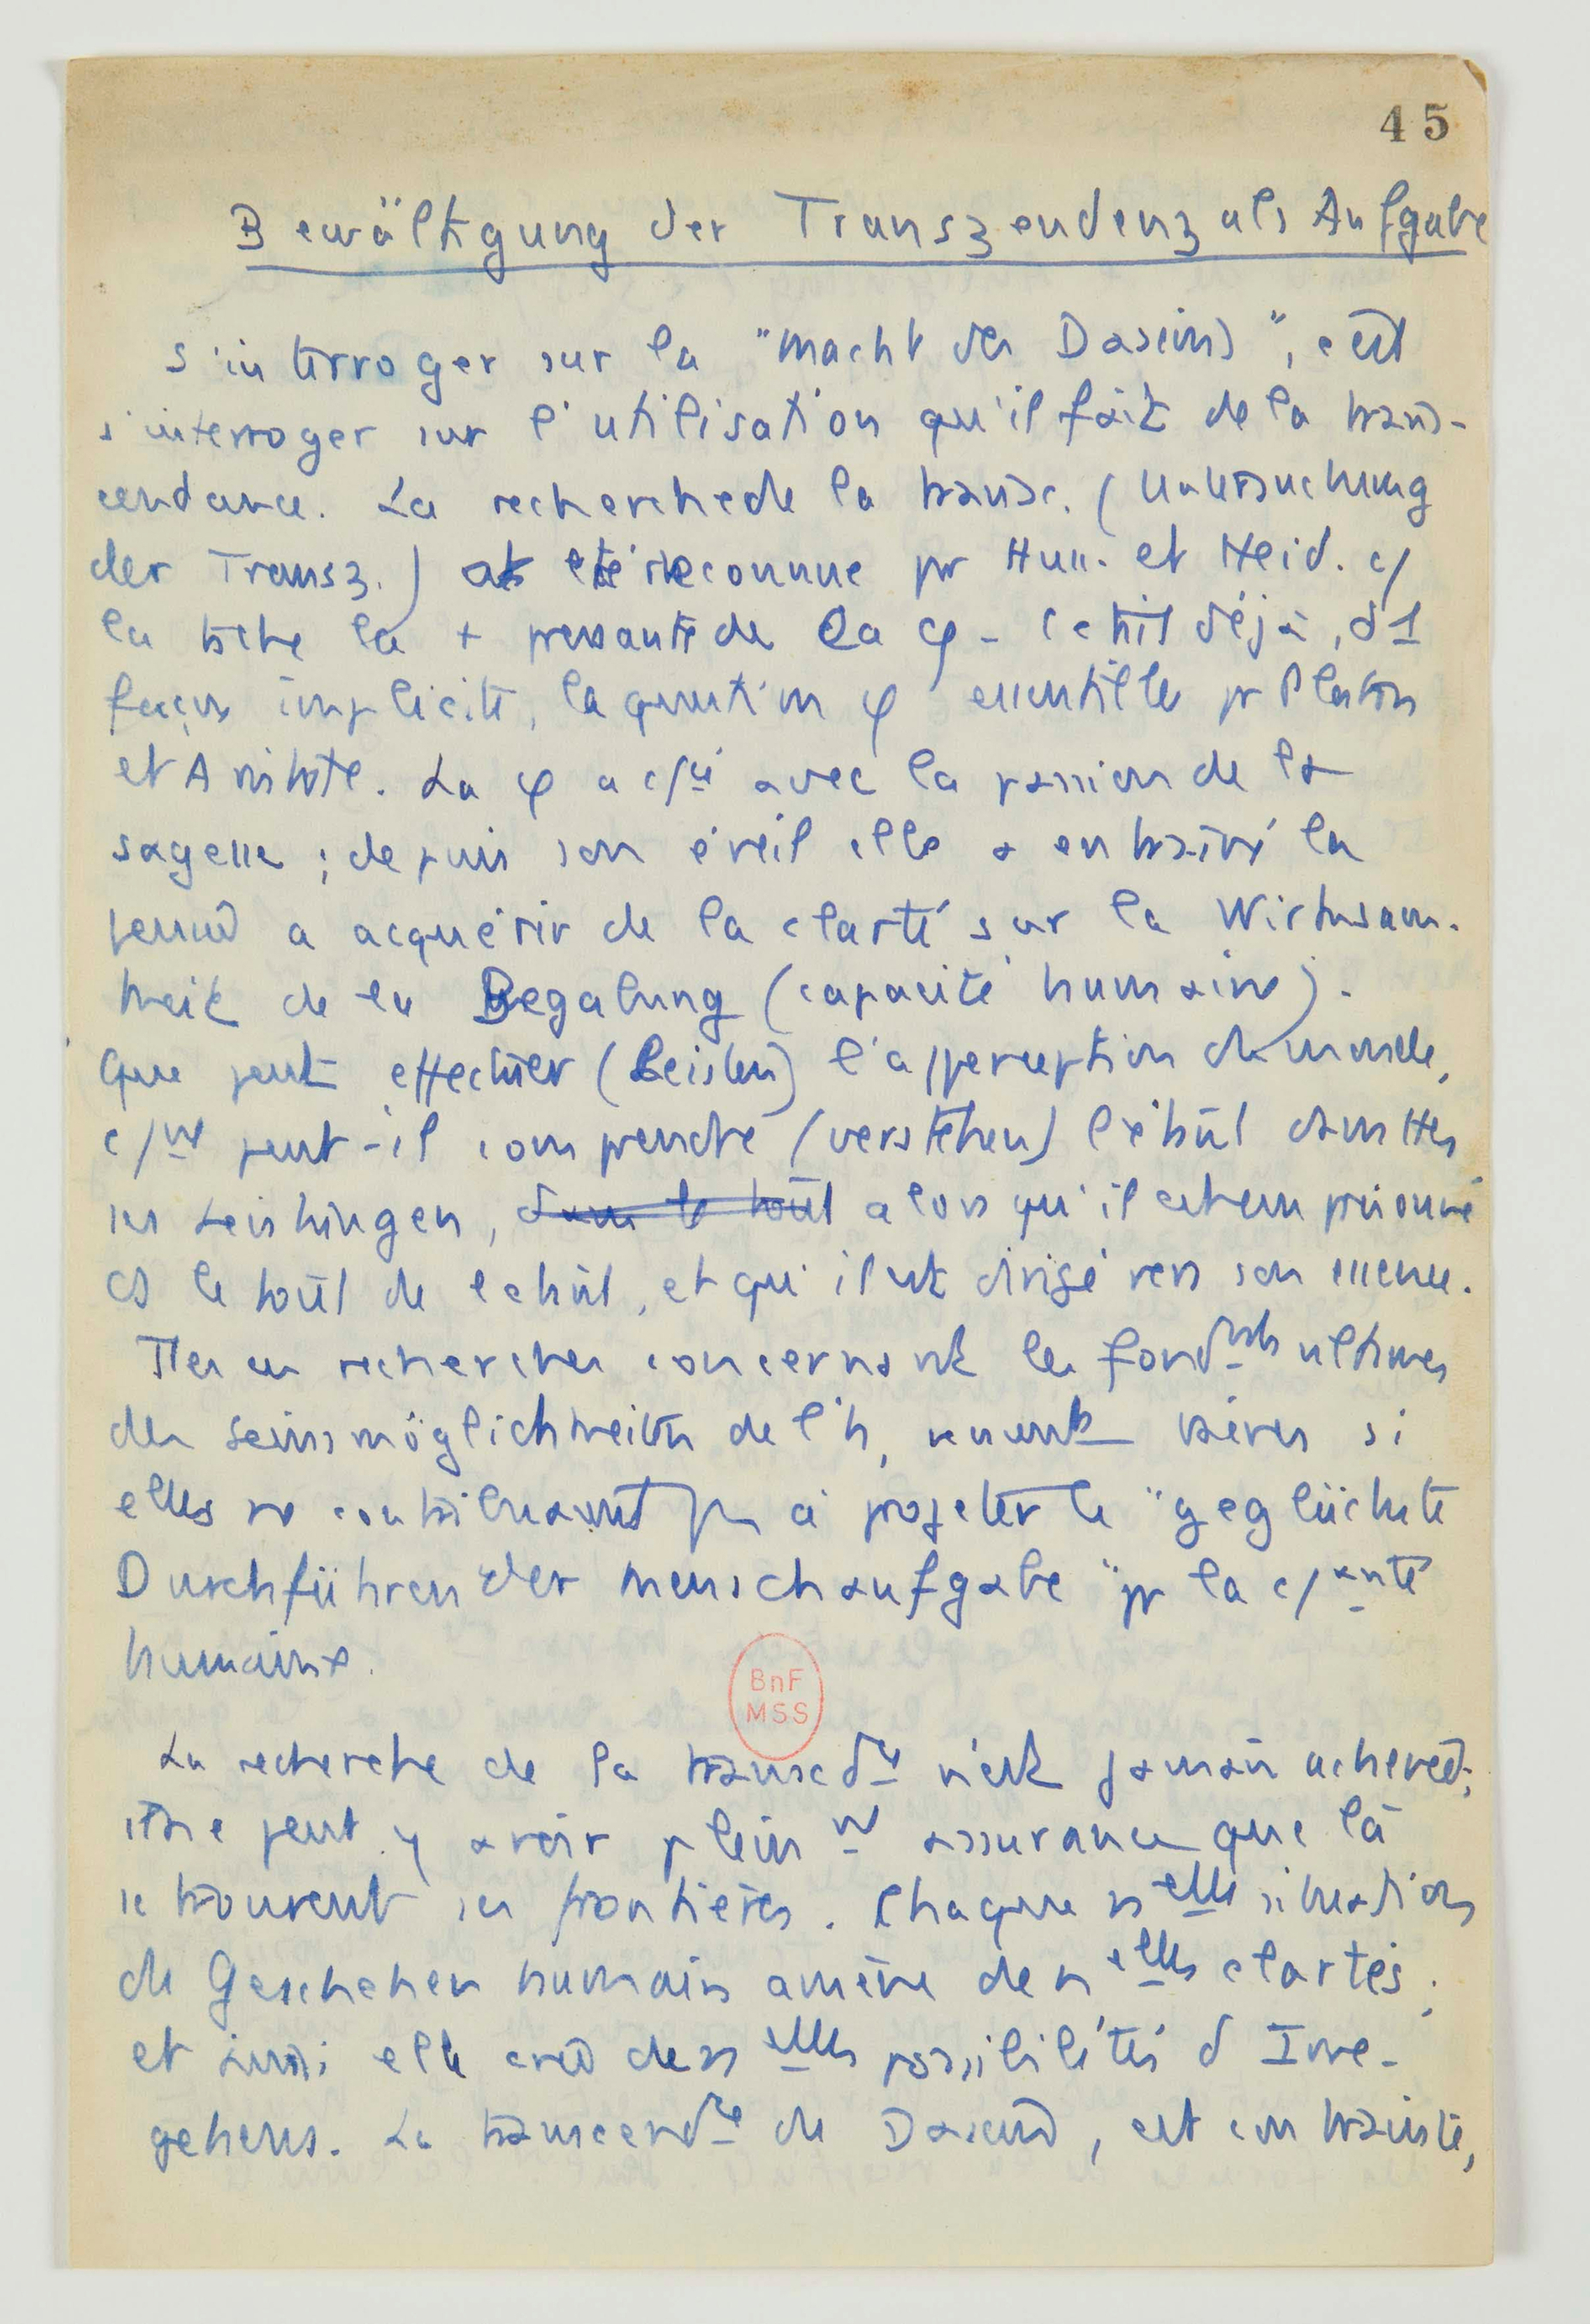 45
Bewältigung der Transzendenz als Aufgabe
s'interroger sur la "Macht des Daseins", c'est
s'interroger sur l'utilisation qu'il fait de la trans-
cendance. La recherche de la transc. (Untersuchung
der Transz.) a été reconnue pr Huss. et Heid. c/
la tâche la + pressante de la φ - C'était déjà, d'1
façon implicite, la question φ essentielle pr Platon
et Aristote. La φ a c/cé avec la passion de la
sagesse ; depuis son éveil elle a entraîné la
pensée a acquérir de la clarté sur la Wirksam-
keit de la Begabung (capacité humaine).
Que peut effectuer (Leisten) l'apperception du monde,
c/nt peut-il comprendre (verstehen) l'étant dans ttes
ses Leistungen, dans le tout alors qu'il est emprisonné
ds le tout de l'étant, et qu'il est dirigé vers son essence.
Ttes ces recherches concernant les fondmts ultimes
des Seinsmöglichkeiten de l'h, vaines si
elles ne contribuaient pas à projeter le "geglückte
Durchführen der Menschaufgabe" pr la c/auté
humaine.
BnF
MSS
La recherche de la transcdce n'est jamais achevée ;
il ne peut y avoir pleinnt assurance que là
se trouvent ses frontières. Chaque nelle situation
du Geschehen humain amène des nelles clartés ;
et aussi elle crée des nelles possibilités d'Irre-
gehens. La transcendce du Dasein, est contrainte,